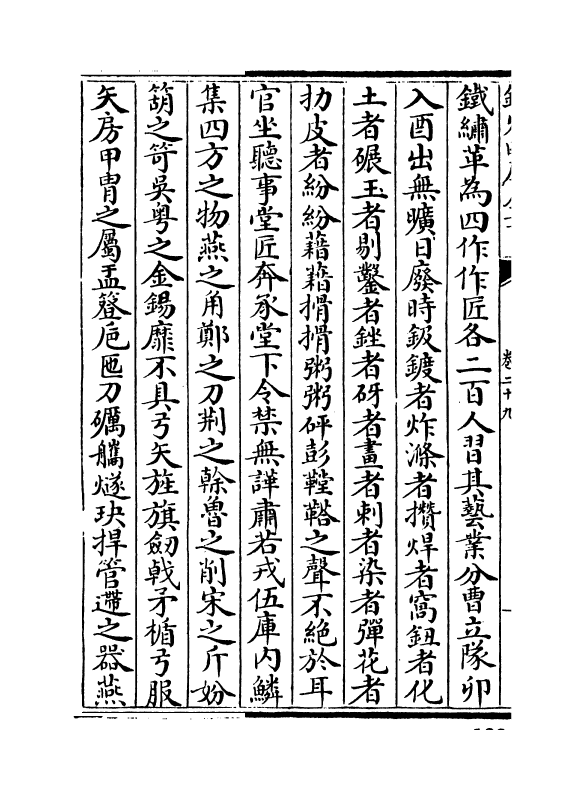 卷二十九
鐵繡革為四作作匠各二百人習其藝業分曹立隊卯
入酉出無曠日廢時鈑鍍者炸滌者攢焊者窩鈕者化
土者碾玉者剔鑿者銼者砑者畫者刺者染者彈花者
扐皮者紛紛藉藉搰搰粥粥砰彭鞺鞳之聲不絕於耳
官坐聽事堂匠奔承堂下令禁無譁肅若戎伍庫内鱗
集四方之物燕之角鄭之刀荆之榦魯之削宋之斤妢
箭之笴吳粤之金錫靡不具弓矢旌旗劒戟矛楯弓服
矢房甲冑之屬盂簦巵匜刀礪觿燧玦捍管遰之器燕